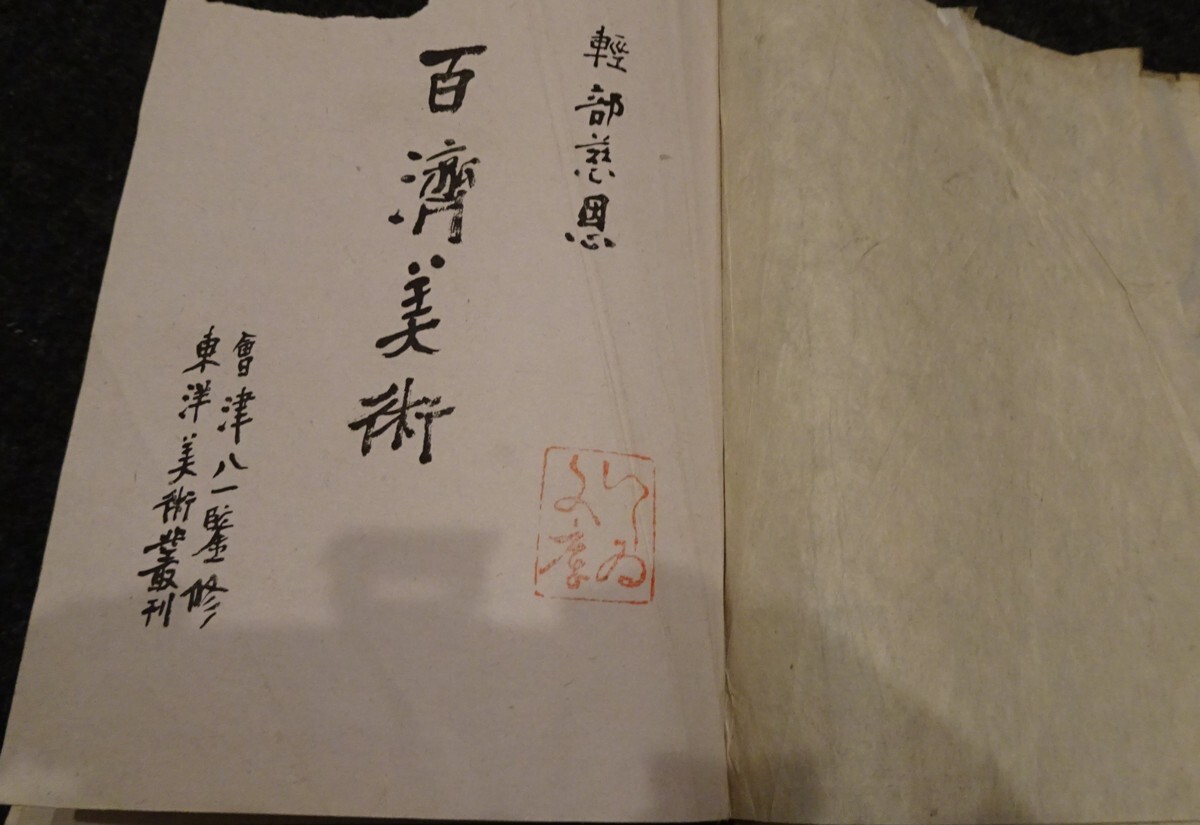 輕部慈恩
百濟美術
會津八一監修
東洋美術叢刊